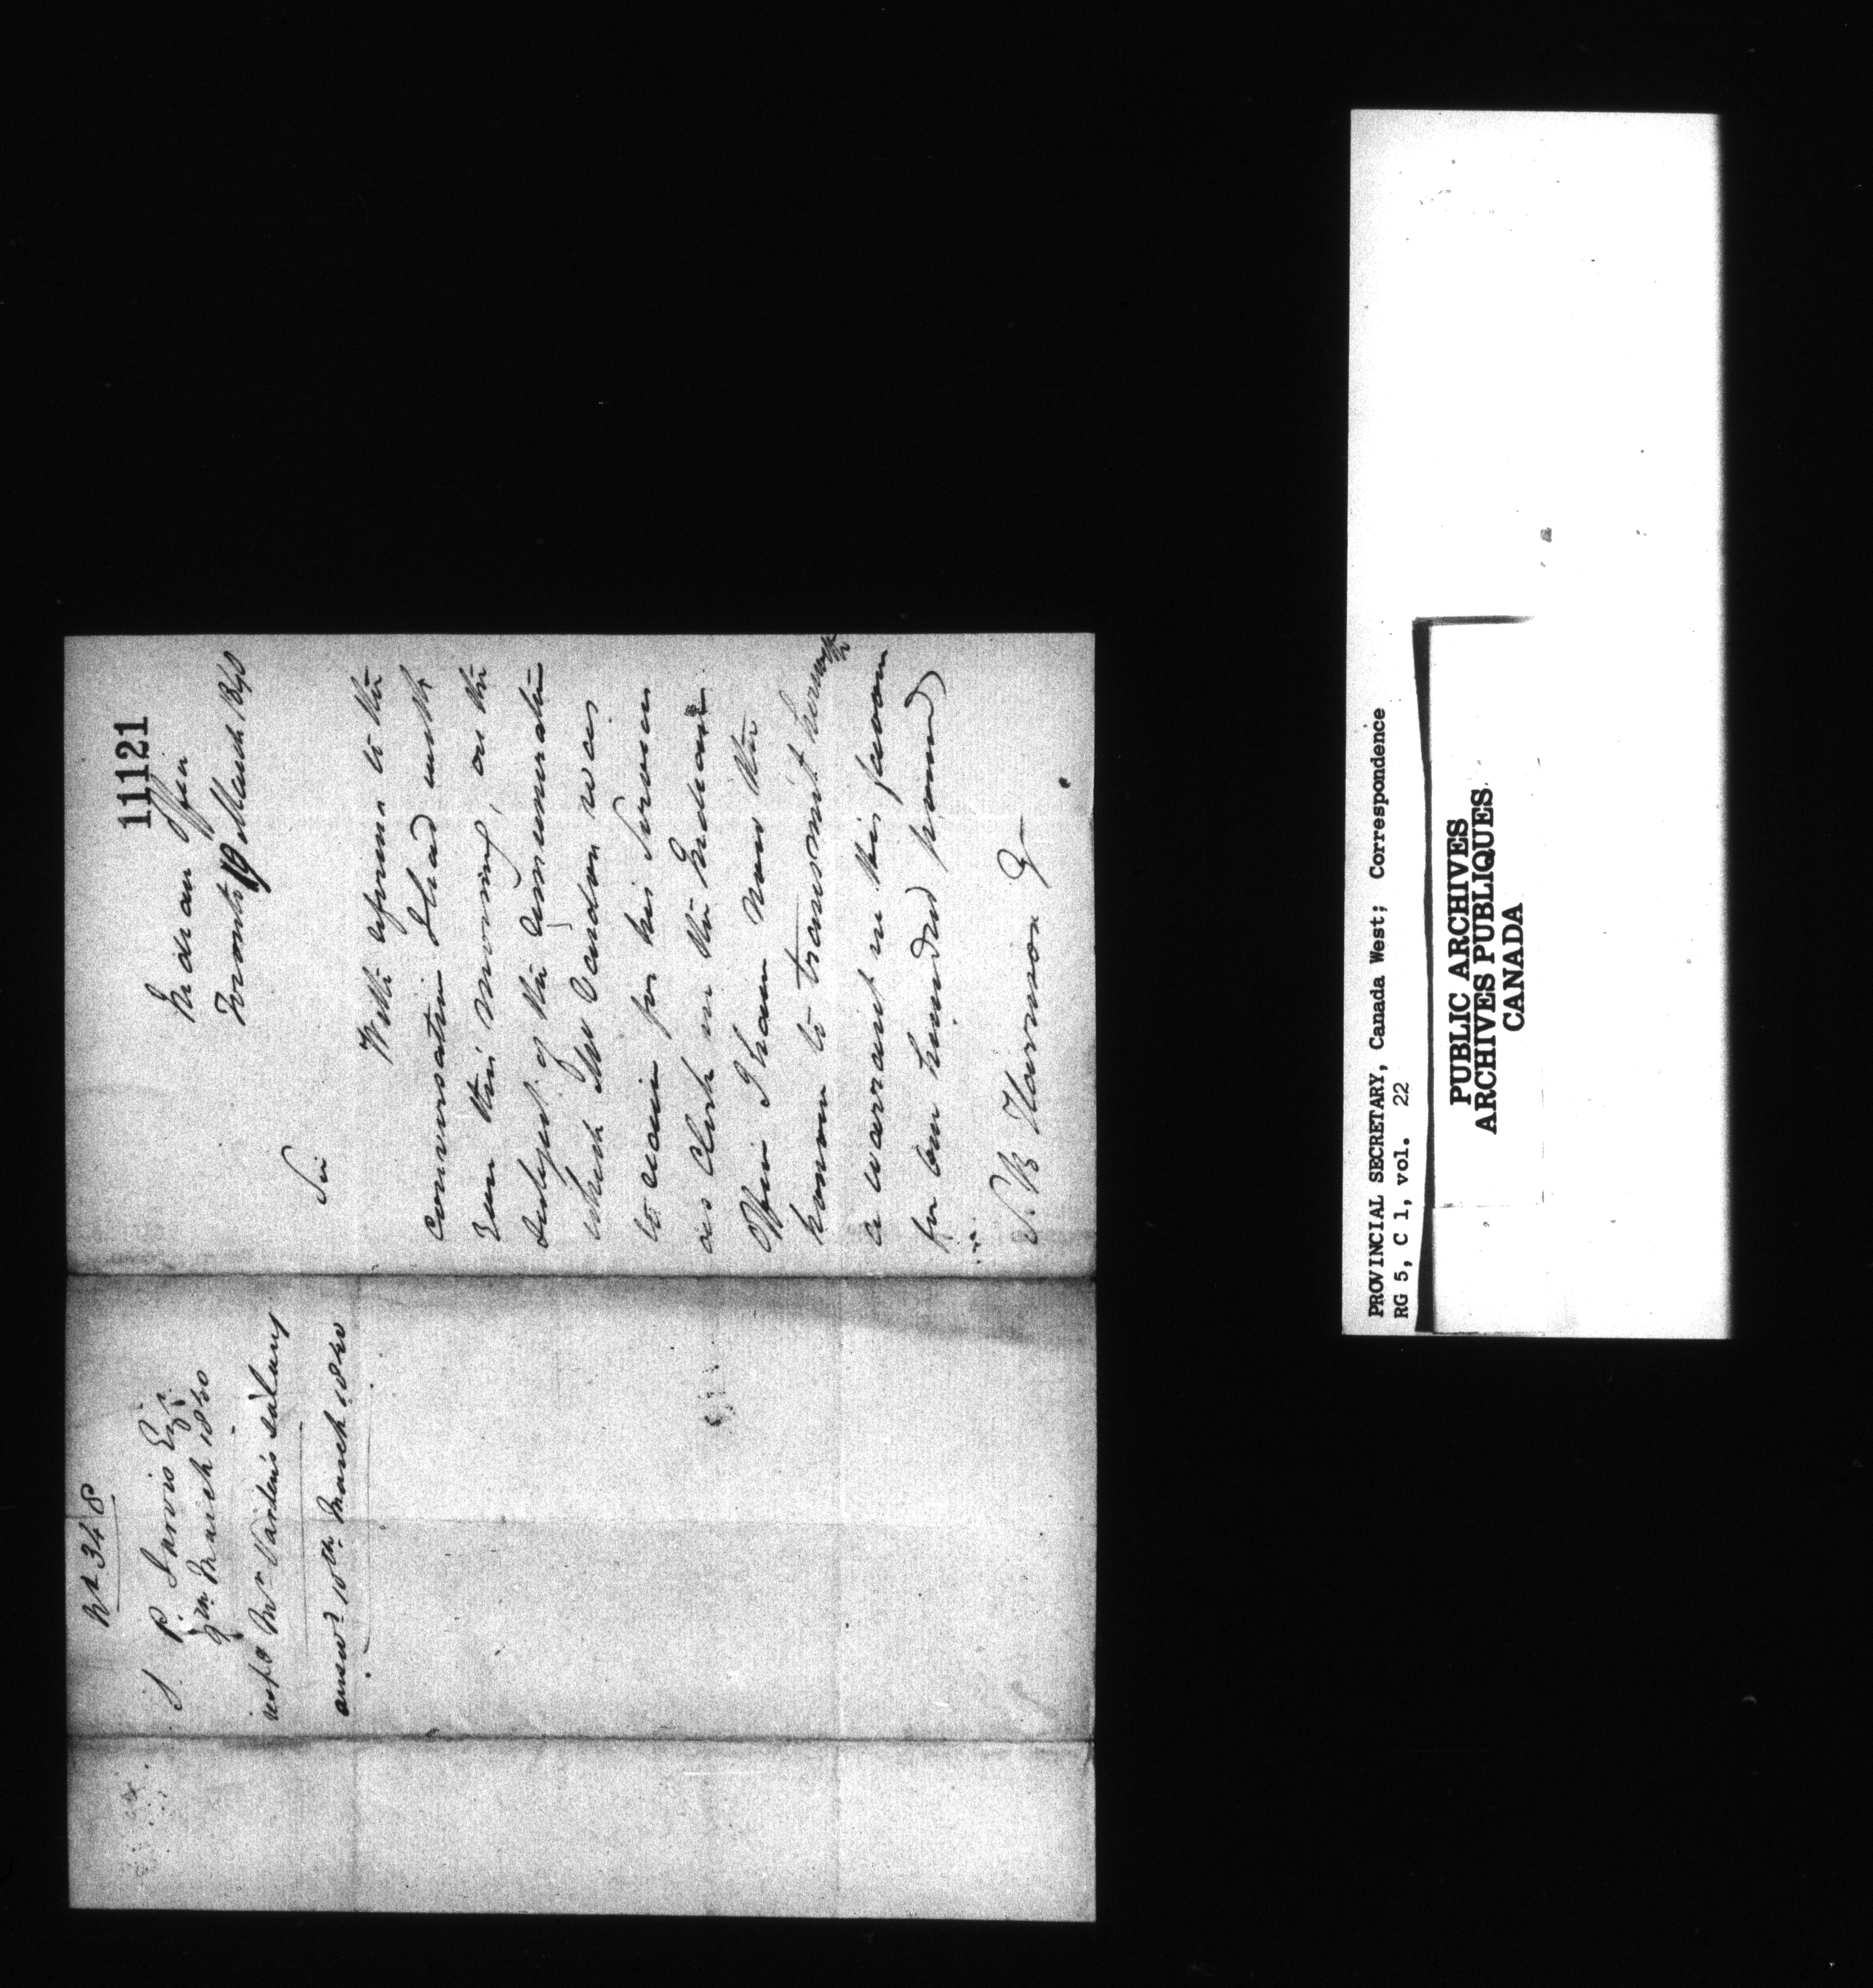 11121
Indian Office
Toronto 9 March 1840
Sir
With reference to the
conversation I had with
you this morning, on the
subject of the remuneration
which Mr Vardon was
to receive for his services
as Clerk in the Indian
Office I have now the
honor to transmit herewith
a warrant in his favour
for one hundred pounds
S. B. Harrison
No 348
S. P. Jarvis Esqr
9th March 1840
resp Mr Vardon's salary
answd 10th March 1840
PROVINCIAL SECRETARY, Canada West; Correspondence
RG 5, C 1, vol. 22
PUBLIC ARCHIVES
ARCHIVES PUBLIQUES
CANADA